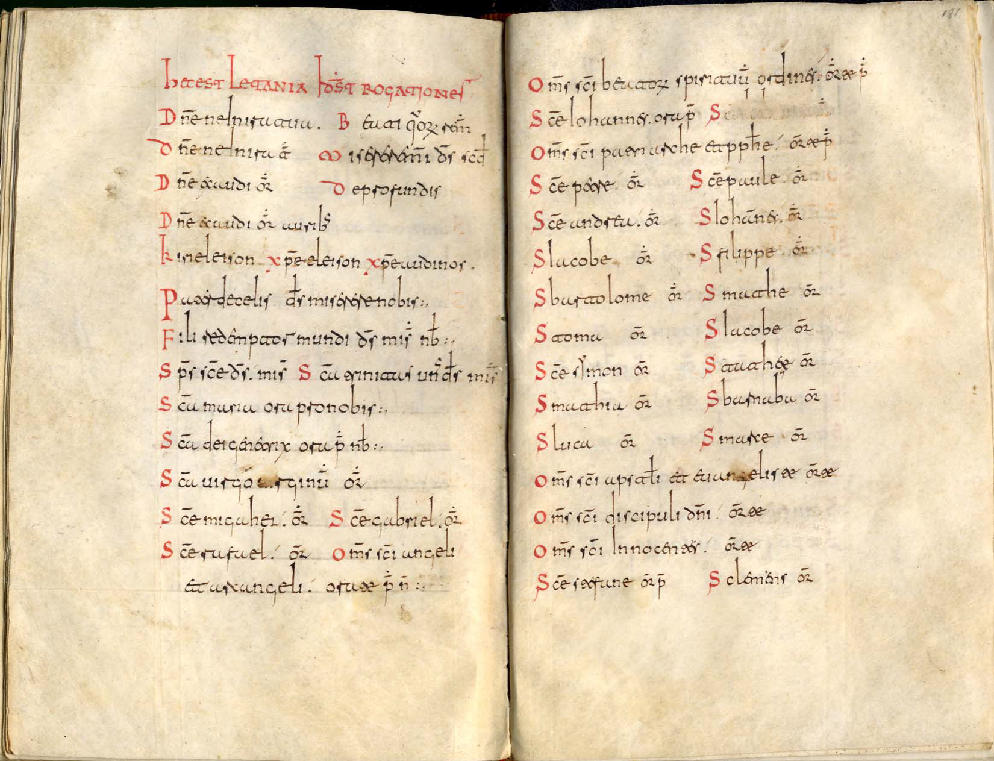 hec est letania post rogationes
Dñe ne in ira tua. B eati qōr
Dñe ne in ira M iserere mei ds scd
Dñe exaudi or D e profundis
Dñe exaudi or auribs
kirieleison xp̄e eleison xp̄e audi nos.
Pater de celis ds miserere nobis:,
Fili redemptor mundi ds mis nb:,
Sps sce ds. mis S ca trinitas un ds mis
S ca maria ora pro nobis:,
S ca dei genitrix ora p̄ nb:,
S ca uirgo uirginū or
S ce migahel. or S ce gabriel. or
S ce rafael. or Oms sci angeli
et arcangeli. orate p̄ n:,
191
Oms sci beatorū spirituū ordines. orate p̄
S ce Iohannes. ora p̄ S
Oms sci patriarche et pphe. orate p̄
S ce petre or S ce paule. or
S ce andrea. or S Iohañes. or
S Iacobe or S filippe or
S bartolome or S mathe or
S atoma or S Iacobe or
S ce simon or S atathee or
S mathia or S barnaba or
S luca or S marce or
Oms sci apostli et euangeliste orate
Oms sci discipuli dni. orate
Oms sci Innocentes. orate
S ce stefane or p̄ S clemens or